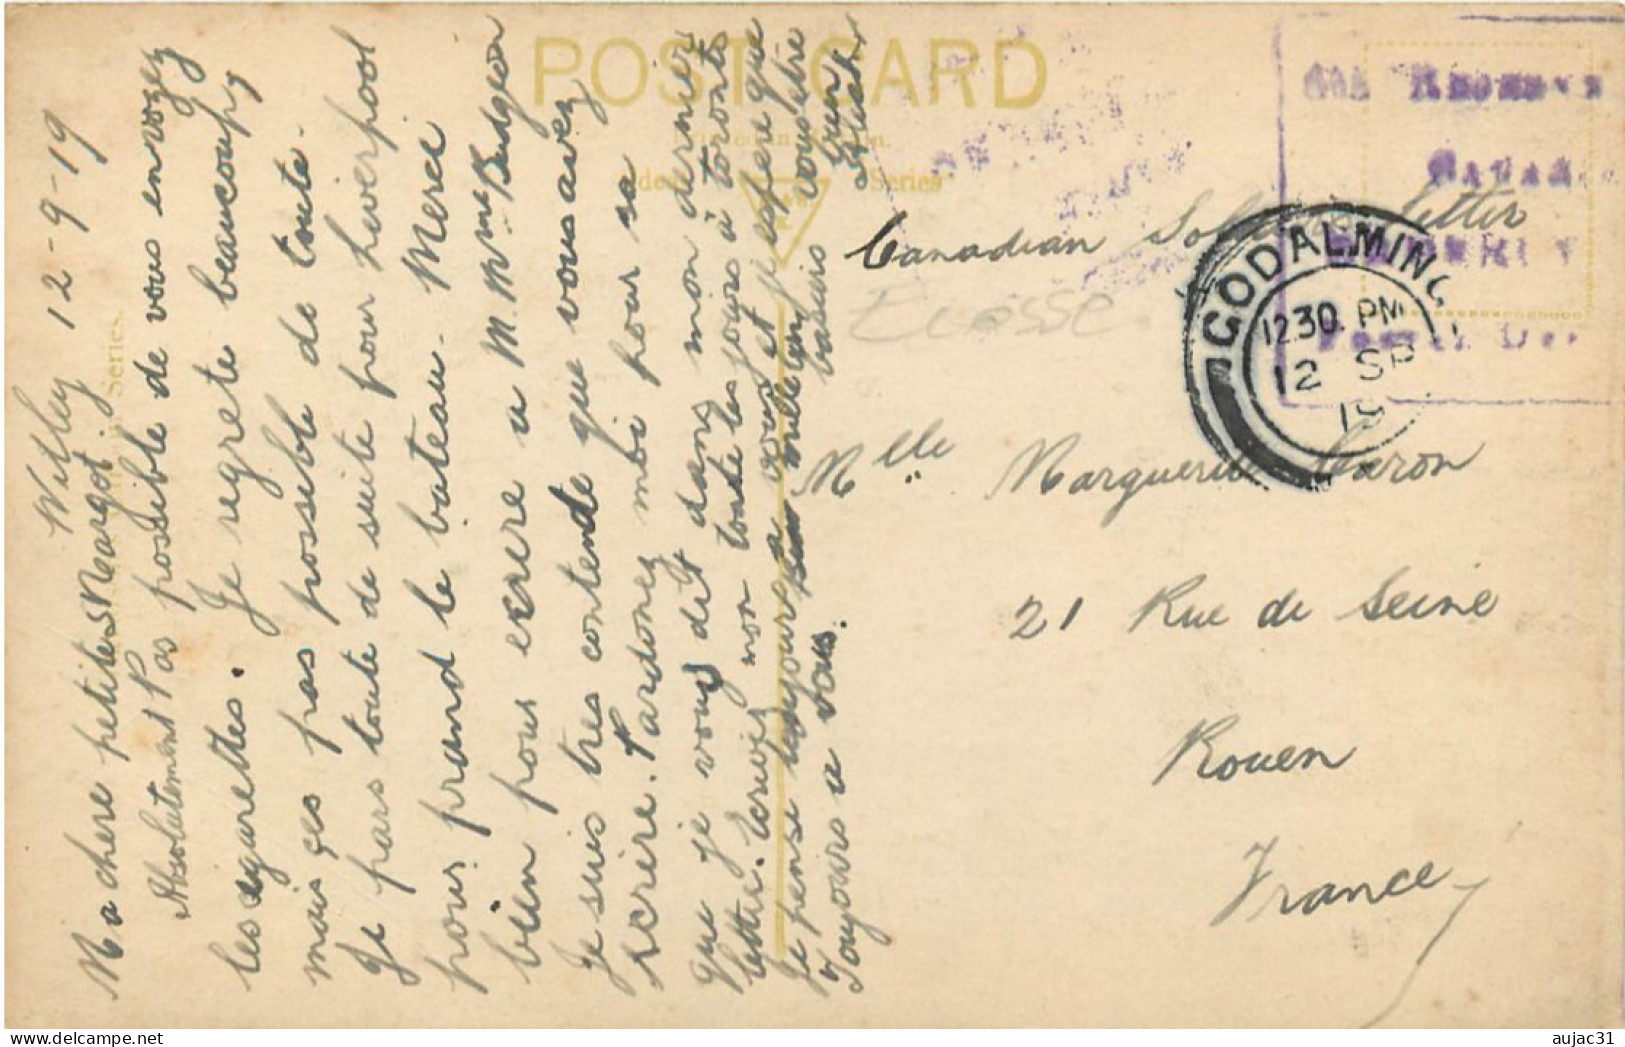 POST CARD
Series
Witley 12-9-19
Ma chere petite Margot.
Absolutement Pas possible de vous envoyez
les cigarettes. Je regrete beaucoup
mais ces pas possible de toute.
Je pars toute de suite pour Liverpool
pour prand le bateau. Merci
bien pour ecrere a M. Mme Budgeon
Je suis tres contende que vous avez
ecrire. Pardonez mói pour sa
que je vous dit dans mon dernier
lettre. Ecrivez mon toute les jours à toronto
Je pense toujours a vous et j'espere que vous etre
mille
baisers
Toujours a vous.
Canadian Soldiers letter
Ecosse
GODALMING
12.30 PM
12 SP
19
Mlle Marguerite Caron
21 Rue de Seine
Rouen
France
aujac31